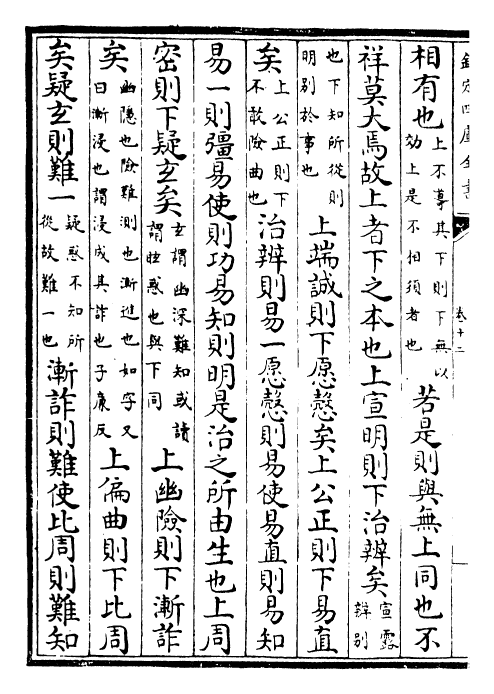 欽定四庫全書
卷十二
相有也
上不導其下則下無以
効上是不相須者也
若是則與無上同也不
祥莫大焉故上者下之本也上宣明則下治辨矣
宣露
辨别
也下知所從則
明别於事也
上端誠則下愿慤矣上公正則下易直
矣
上公正則下
不敢險曲也
治辨則易一愿慤則易使易直則易知
易一則彊易使則功易知則明是治之所由生也上周
密則下疑玄矣
玄謂幽深難知或讀
謂眩惑也與下同
上幽險則下漸詐
矣
幽隱也險難測也漸進也如字又
曰漸浸也謂浸成其詐也子廉反
上偏曲則下比周
矣疑玄則難一
疑惑不知所
從故難一也
漸詐則難使比周則難知